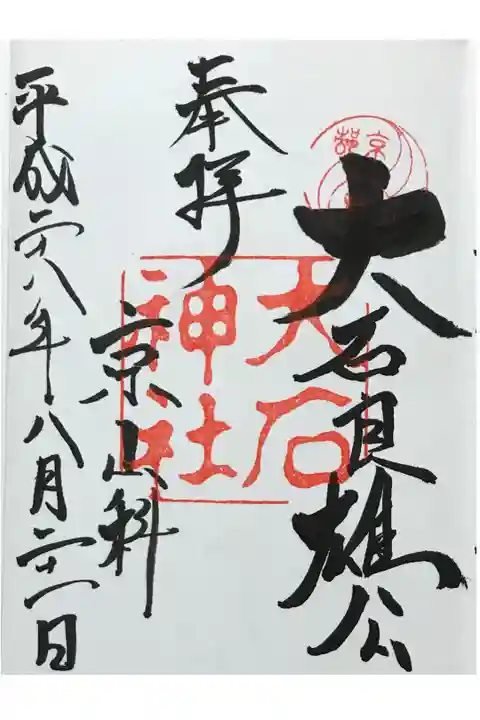 京都
大石良雄公
大石
神社
奉拝
京山科
平成二十八年八月二十一日